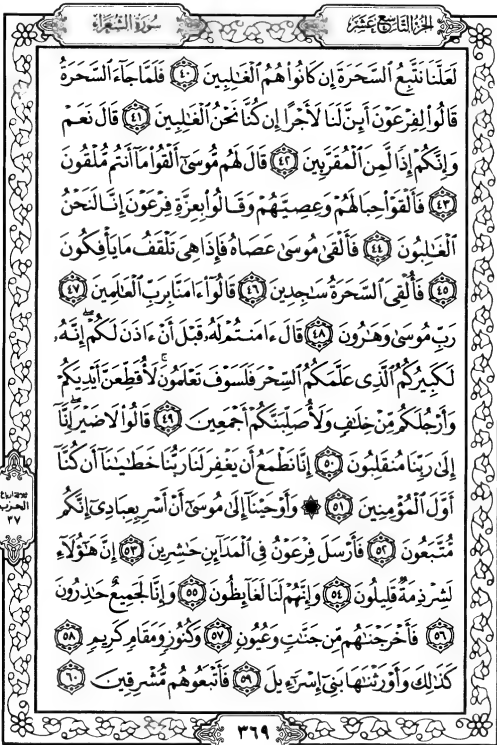 الجزء التاسع عشر
سورة الشعراء
لَعَلَّنَا نَتَّبِعُ السَّحَرَةَ إِن كَانُوا۟ هُمُ ٱلْغَـٰلِبِينَ ٤٠ فَلَمَّا جَآءَ ٱلسَّحَرَةُ
قَالُوا۟ لِفِرْعَوْنَ أَئِنَّ لَنَا لَأَجْرًا إِن كُنَّا نَحْنُ ٱلْغَـٰلِبِينَ ٤١ قَالَ نَعَمْ
وَإِنَّكُمْ إِذًا لَّمِنَ ٱلْمُقَرَّبِينَ ٤٢ قَالَ لَهُم مُّوسَىٰٓ أَلْقُوا۟ مَآ أَنتُم مُّلْقُونَ
٤٣ فَأَلْقَوْا۟ حِبَالَهُمْ وَعِصِيَّهُمْ وَقَالُوا۟ بِعِزَّةِ فِرْعَوْنَ إِنَّا لَنَحْنُ
ٱلْغَـٰلِبُونَ ٤٤ فَأَلْقَىٰ مُوسَىٰ عَصَاهُ فَإِذَا هِىَ تَلْقَفُ مَا يَأْفِكُونَ
٤٥ فَأُلْقِىَ ٱلسَّحَرَةُ سَـٰجِدِينَ ٤٦ قَالُوٓا۟ ءَامَنَّا بِرَبِّ ٱلْعَـٰلَمِينَ ٤٧
رَبِّ مُوسَىٰ وَهَـٰرُونَ ٤٨ قَالَ ءَامَنتُمْ لَهُۥ قَبْلَ أَنْ ءَاذَنَ لَكُمْ ۖ إِنَّهُۥ
لَكَبِيرُكُمُ ٱلَّذِى عَلَّمَكُمُ ٱلسِّحْرَ فَلَسَوْفَ تَعْلَمُونَ ۚ لَأُقَطِّعَنَّ أَيْدِيَكُمْ
وَأَرْجُلَكُم مِّنْ خِلَـٰفٍ وَلَأُصَلِّبَنَّكُمْ أَجْمَعِينَ ٤٩ قَالُوا۟ لَا ضَيْرَ ۖ إِنَّآ
إِلَىٰ رَبِّنَا مُنقَلِبُونَ ٥٠ إِنَّا نَطْمَعُ أَن يَغْفِرَ لَنَا رَبُّنَا خَطَـٰيَـٰنَآ أَن كُنَّآ
أَوَّلَ ٱلْمُؤْمِنِينَ ٥١ ۞ وَأَوْحَيْنَآ إِلَىٰ مُوسَىٰٓ أَنْ أَسْرِ بِعِبَادِىٓ إِنَّكُم
مُّتَّبَعُونَ ٥٢ فَأَرْسَلَ فِرْعَوْنُ فِى ٱلْمَدَآئِنِ حَـٰشِرِينَ ٥٣ إِنَّ هَـٰٓؤُلَآءِ
لَشِرْذِمَةٌ قَلِيلُونَ ٥٤ وَإِنَّهُمْ لَنَا لَغَآئِظُونَ ٥٥ وَإِنَّا لَجَمِيعٌ حَـٰذِرُونَ
٥٦ فَأَخْرَجْنَـٰهُم مِّن جَنَّـٰتٍ وَعُيُونٍ ٥٧ وَكُنُوزٍ وَمَقَامٍ كَرِيمٍ ٥٨
كَذَٰلِكَ وَأَوْرَثْنَـٰهَا بَنِىٓ إِسْرَٰٓءِيلَ ٥٩ فَأَتْبَعُوهُم مُّشْرِقِينَ ٦٠
ثلاثة أرباع
الحزب
٣٧
٣٦٩